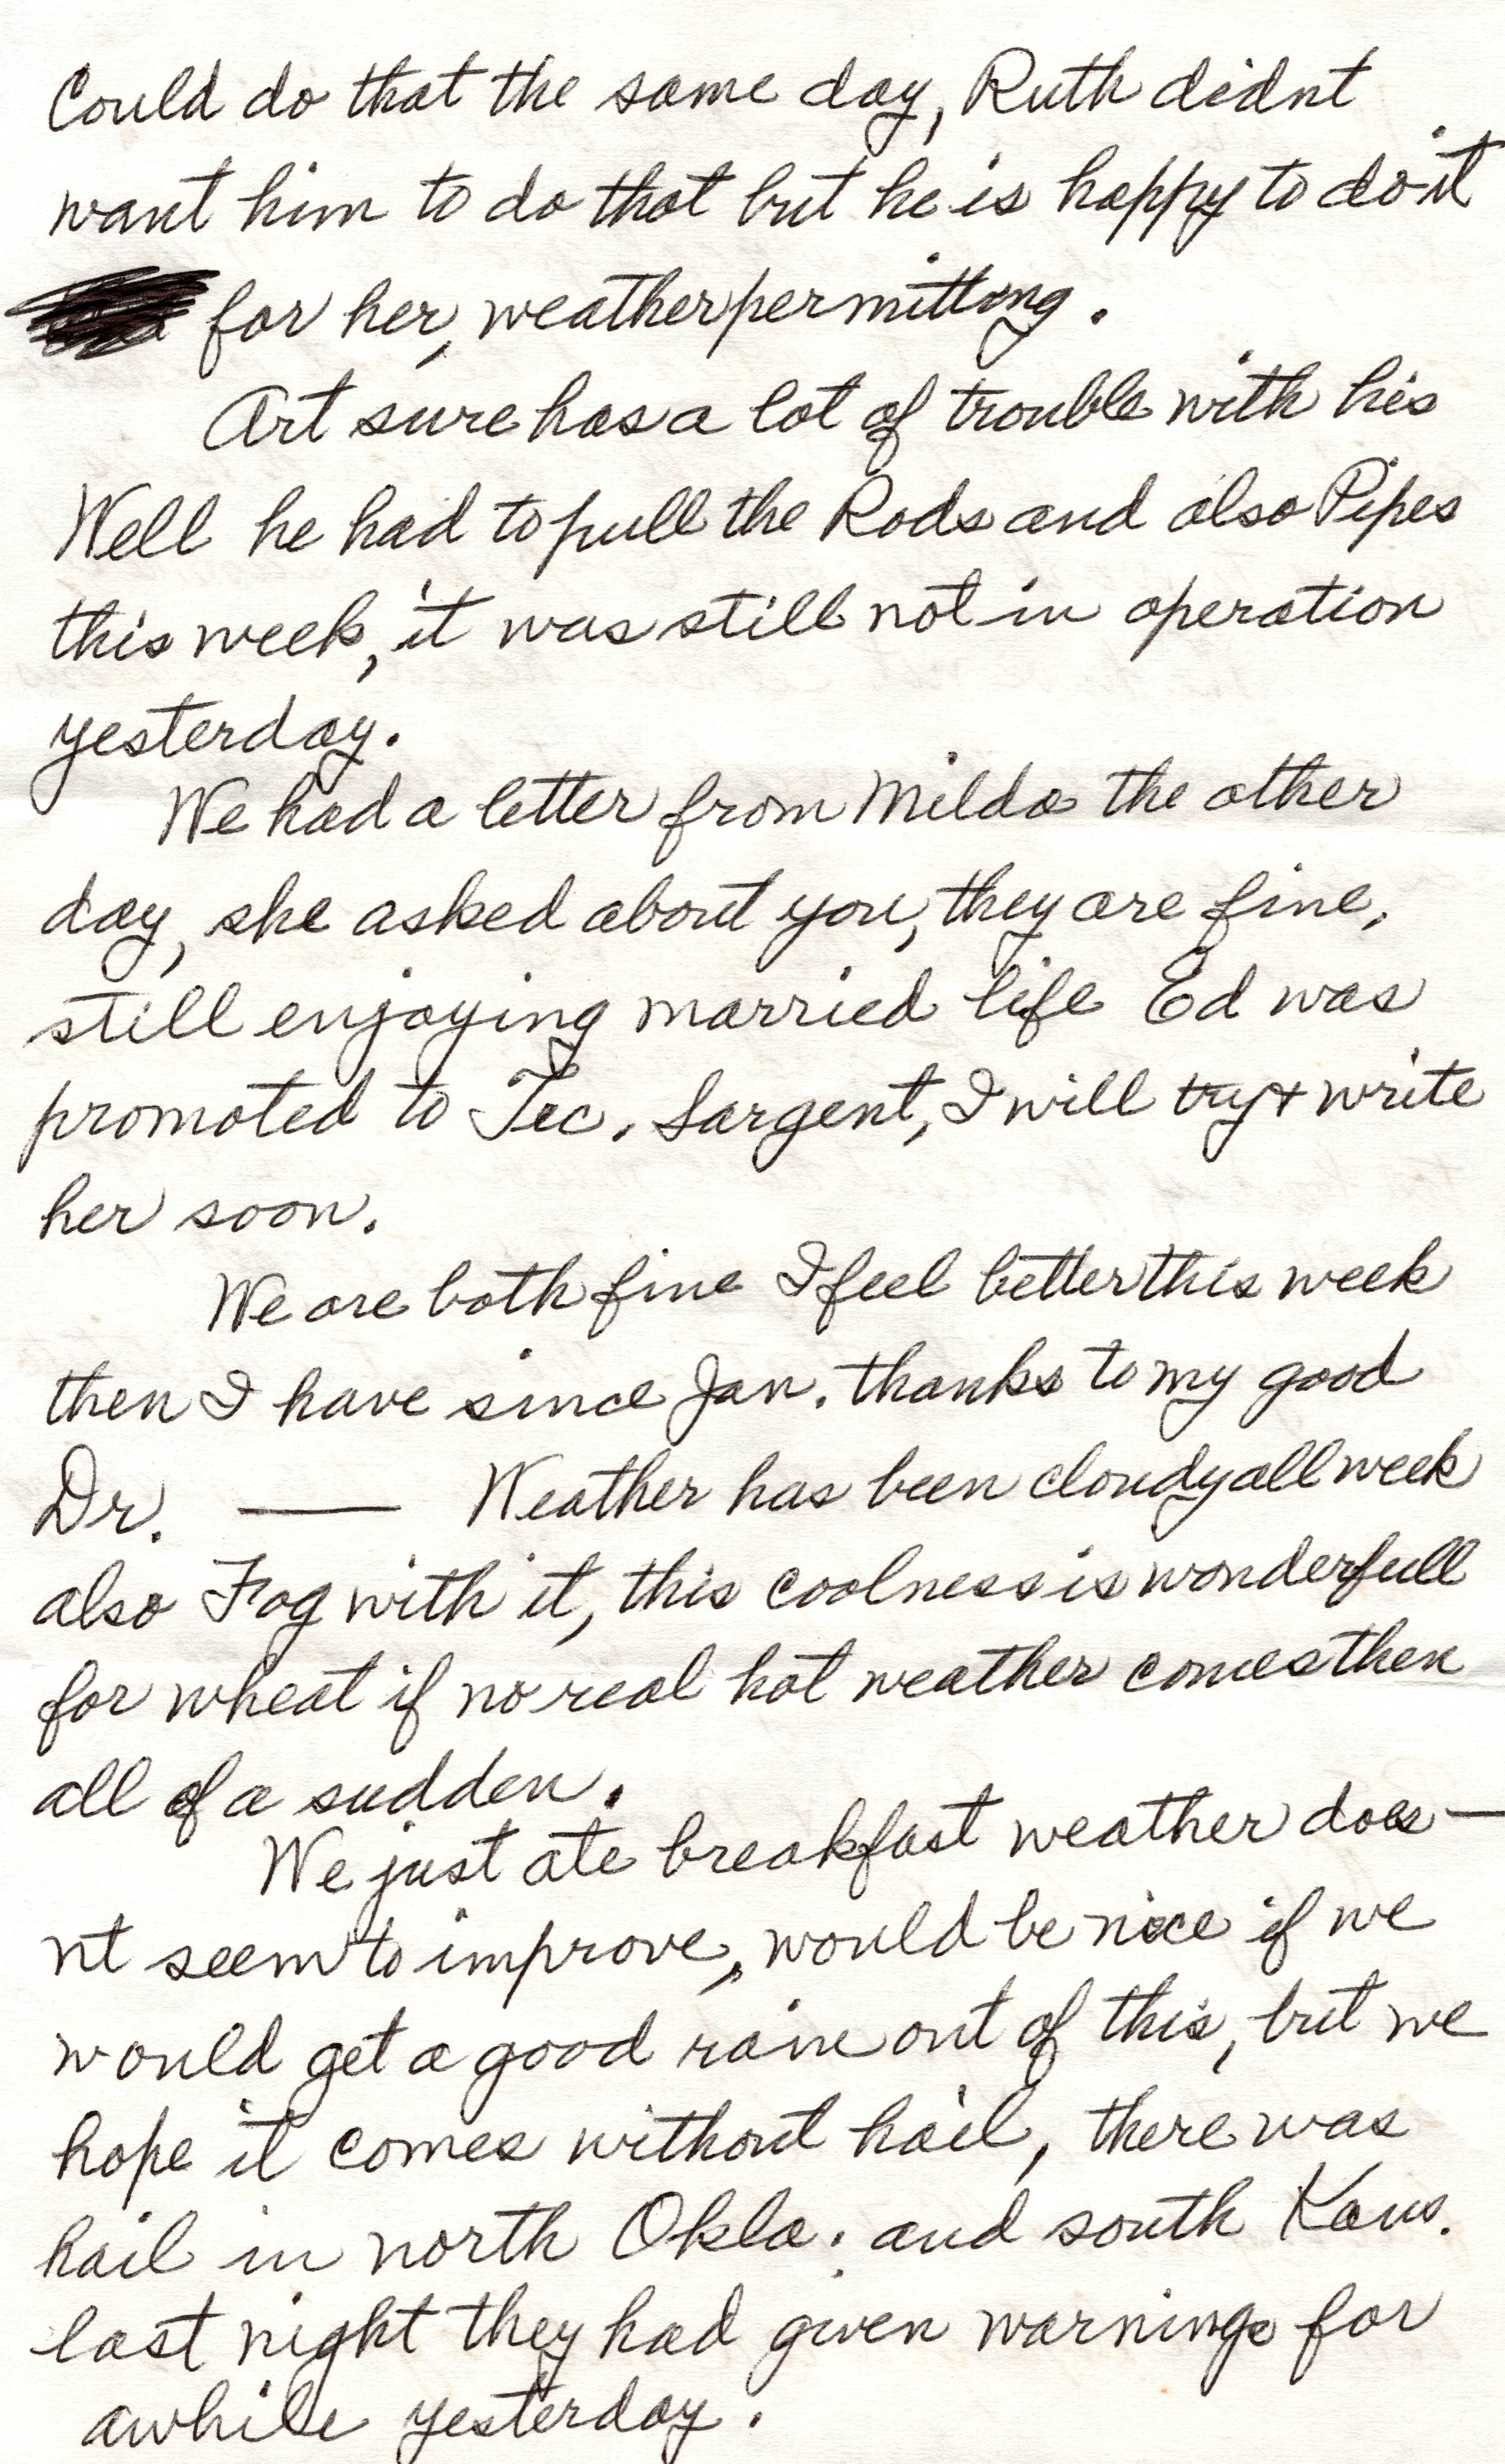 Could do that the same day, Ruth didnt
want him to do that but he is happy to do it
for her, weather permitting.
Art sure has a lot of trouble with his
Well he had to pull the Rods and also Pipes
this week, it was still not in operation
yesterday.
We had a letter from Milda the other
day, she asked about you, they are fine,
still enjoying married life Ed was
promoted to Tec. Sargent, I will try + write
her soon.
We are both fine I feel better this week
then I have since Jan. thanks to my good
Dr. — Weather has been cloudy all week
also Fog with it, this coolness is wonderfull
for wheat if no real hot weather comes then
all of a sudden.
We just ate breakfast weather does-
nt seem to improve, would be nice if we
would get a good rain out of this, but we
hope it comes without hail, there was
hail in north Okla. and south Kans.
last night they had given warnings for
awhile yesterday.